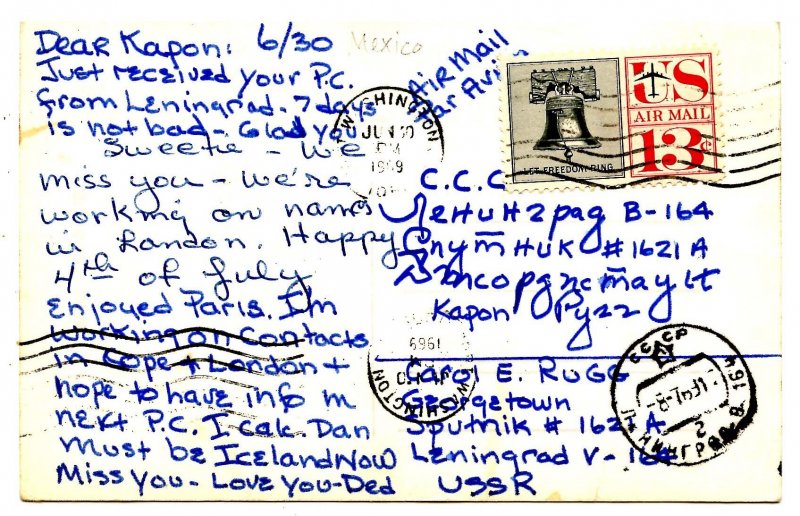 Dear Kapon: 6/30
Mexico
Just received your P.C.
from Leningrad. 7 days
is not bad - Glad you
Sweetie - We
miss you - we're
working on names
in London. Happy
4th of July
Enjoyed Paris. I'm
working on contacts
in Cope + London +
hope to have info in
next P.C. I calc. Dan
must be Iceland Now
Miss You - Love You - Ded
Air Mail
Par Avion
WASHINGTON
JUN 30
PM
1969
LET FREEDOM RING
US
AIR MAIL
13c
C.C.C
Ленинград B-164
Спутник # 1621 A
Карол Ругг
Carol E. Rugg
Georgetown
Sputnik # 1621 A
Leningrad V-164
USSR
WASHINGTON
1969
СССР
ЛЕНИНГРАД
В-164